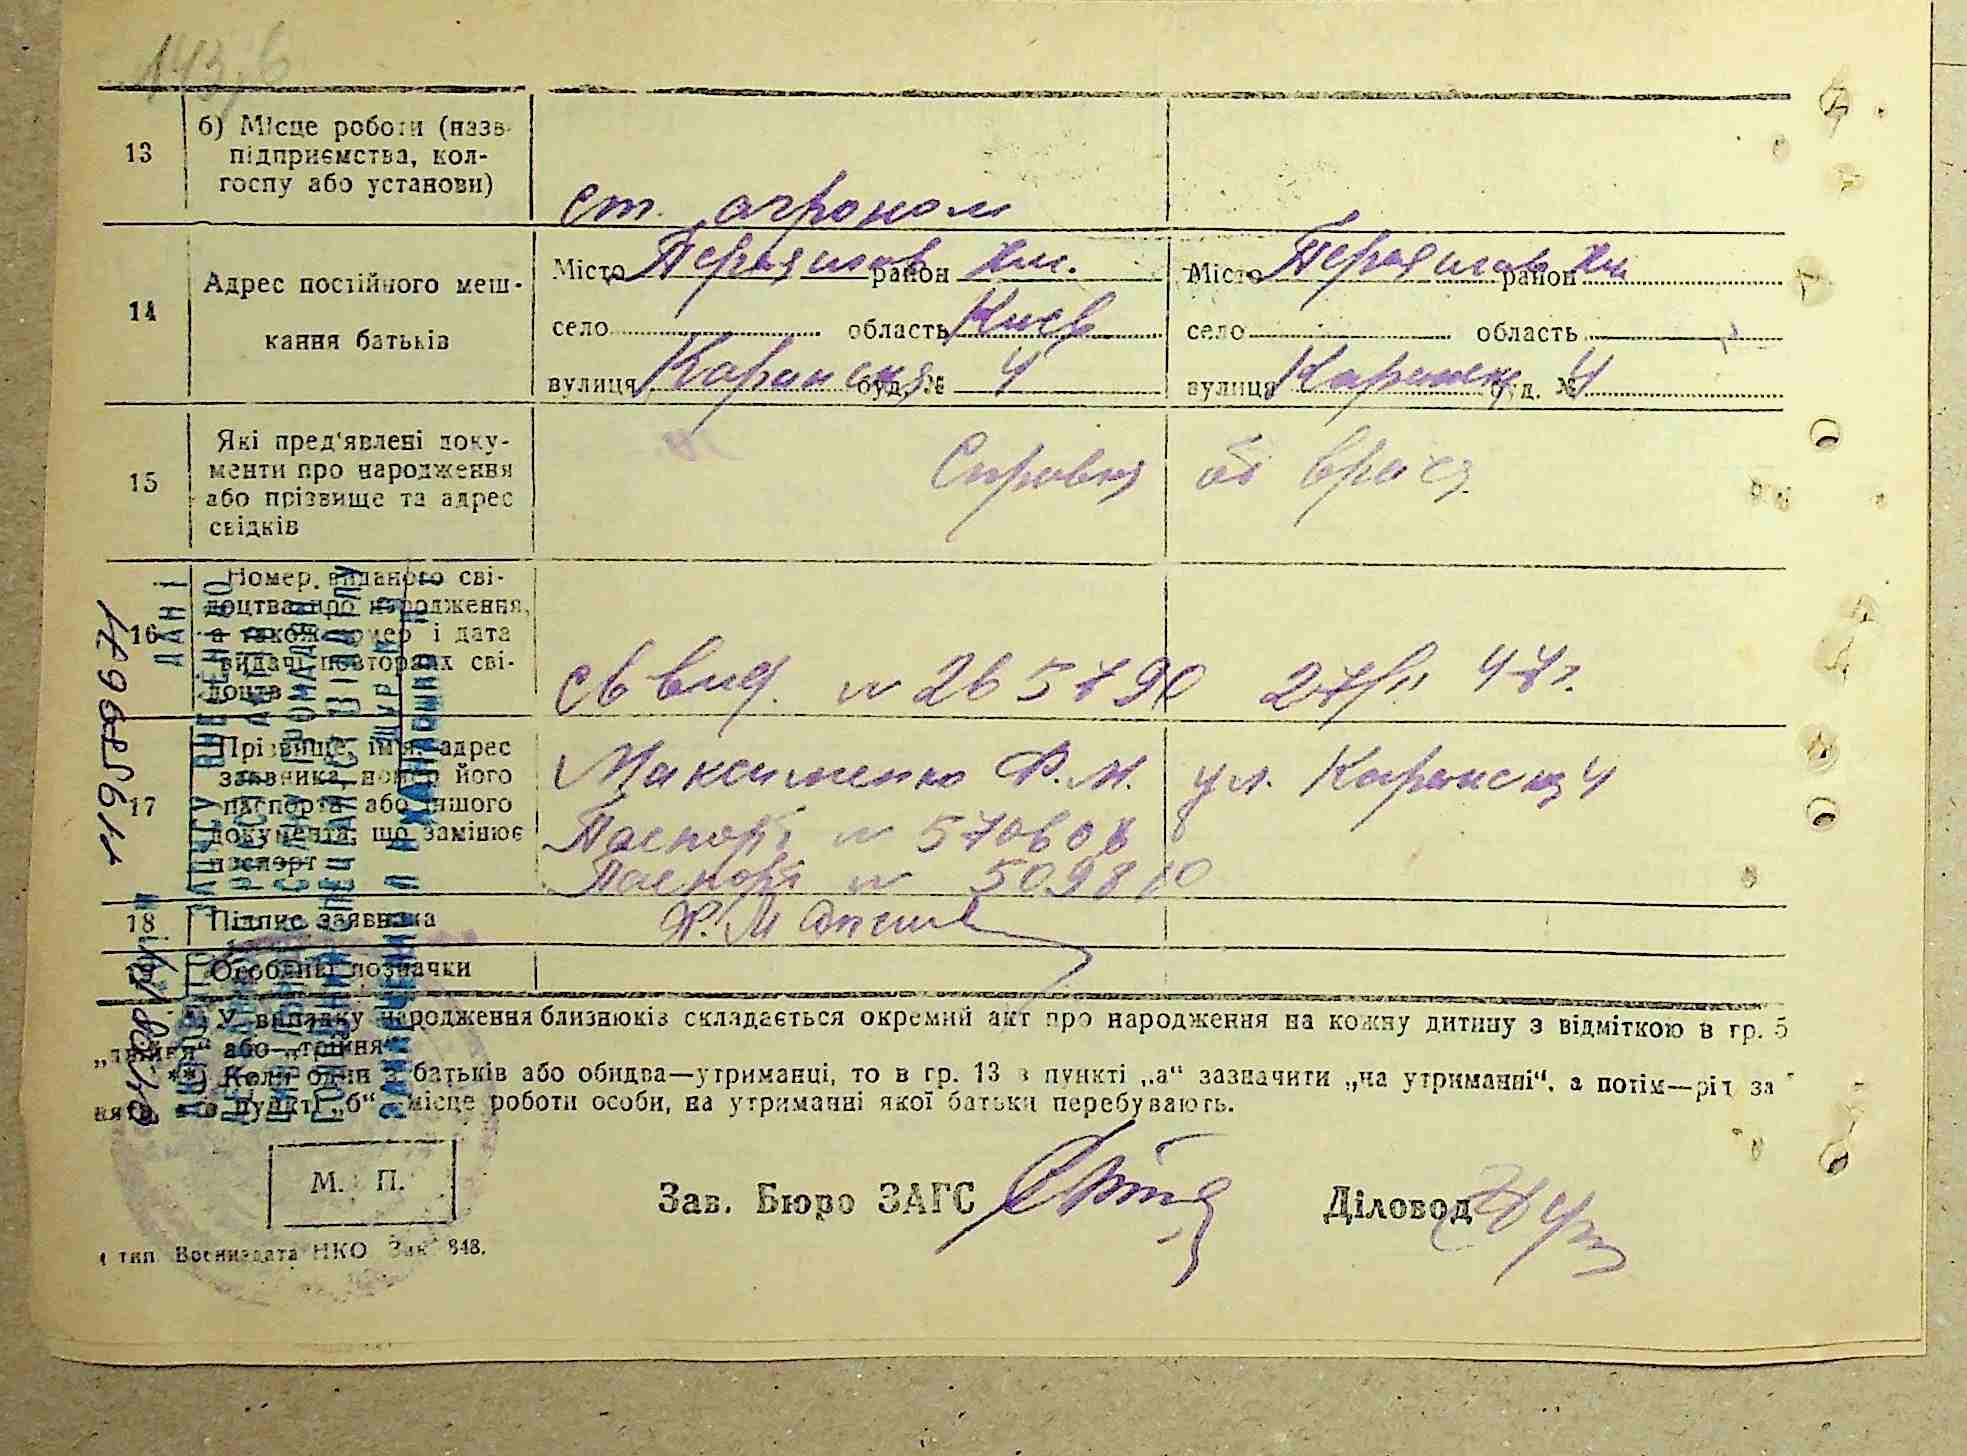 143,б
13
б) Місце роботи (назв
підприємства, кол-
госпу або установи)
ст. агроном
14
Адрес постійного меш-
кання батьків
Місто Переяслав район Хм.
село область Киев
вулиця Каранская буд. № 4
Місто Переяслав район Хм
село область
вулиця Каранск буд. № 4
15
Які пред'явлені доку-
менти про народження
або прізвище та адрес
свідків
Справка от врача
16
Номер виданого сві-
доцтва про народження,
а також номер і дата
видачі повторних сві-
доцтв
N 265790 27/ 47г.
17
Прізвище, ім'я, адрес
заявника, номер його
паспорта або іншого
документа, що замінює
паспорт
Максименко Ф. М. ул. Каранская 4
Паспорт N 570608
Паспорт N 509810
18
Підпис заявника
Ф. М
Особливі позначки
*) У випадку народження близнюків складається окремий акт про народження на кожну дитину з відміткою в гр. 5
„двійня“ або „трійня“.
**) Коли один з батьків або обидва—утриманці, то в гр. 13 в пункті „а“ зазначити „на утриманні“, а потім—рід за
а в пункті „б“ місце роботи особи, на утриманні якої батьки перебувають.
М. П.
Зав. Бюро ЗАГС
Діловод
тип Воениздата НКО Зак 848.
ДАНІ
АКТОВОГО ЗАПИСУ ВНЕСЕНІ ДО
ДЕРЖАВНОГО РЕЄСТРУ АКТІВ
ЦИВІЛЬНОГО СТАНУ ГРОМАДЯН